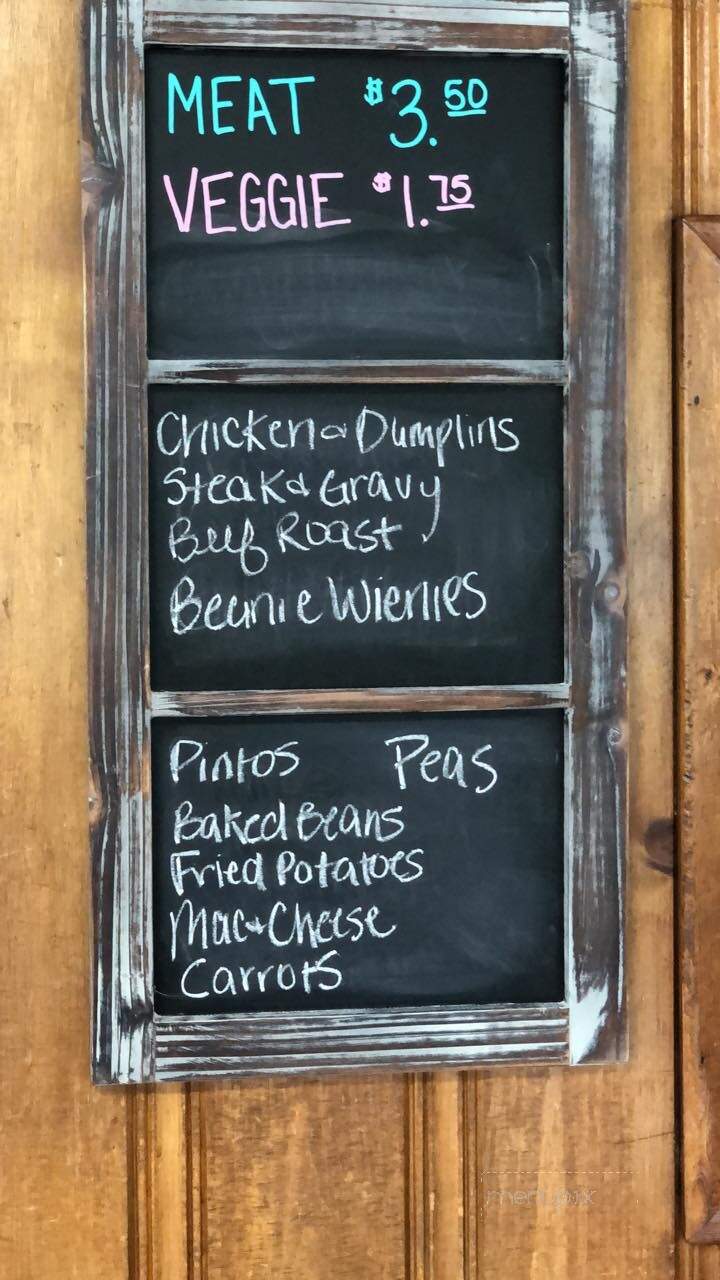 MEAT $3.50
VEGGIE $1.75
Chicken & Dumplins
Steak & Gravy
Beef Roast
Beanie Wienies
Pintos Peas
Baked Beans
Fried Potatoes
Mac & Cheese
Carrots
menupix